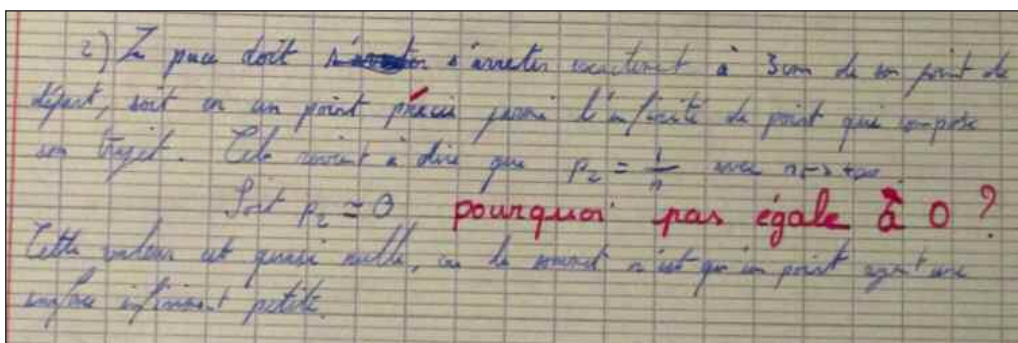 2) La puce doit s'arreter exactement à 3 cm de son point de
départ, soit en un point précis parmi l'infinité de point qui compose
son trajet. Cela revient à dire que p₂ = 1/n avec n → +∞.
Soit p₂ ≃ 0 pourquoi pas égale à 0 ?
Cette valeur est quasi nulle, car le sommet n'est qu'un point ayant une
surface infiniment petite.